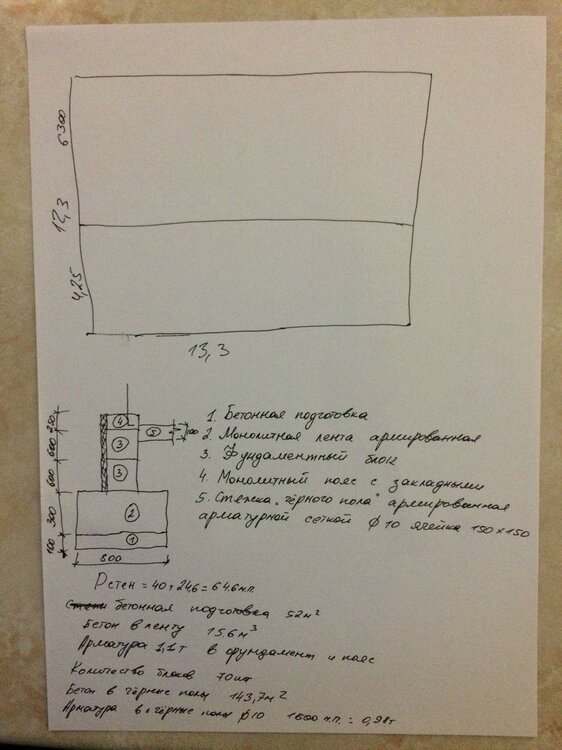 6300
12,3
4,25
13,3
250
600
600
300
100
4
3
3
5
100
2
1
800
1. Бетонная подготовка
2. Монолитная лента армированная
3. Фундаментный блок
4. Монолитный пояс с закладными
5. Стяжка "чёрного пола" армированная
арматурной сеткой ф 10 ячейка 150х150
Рстен = 40+24,6 = 64.6м.п.
бетонная подготовка 52м²
Бетон в ленту 15.6м³
Арматура 1,1т в фундамент и пояс
Количество блоков 70шт
Бетон в чёрные полы 143,7м²
Арматура в чёрные полы ф10 1600 м.п. = 0,98т